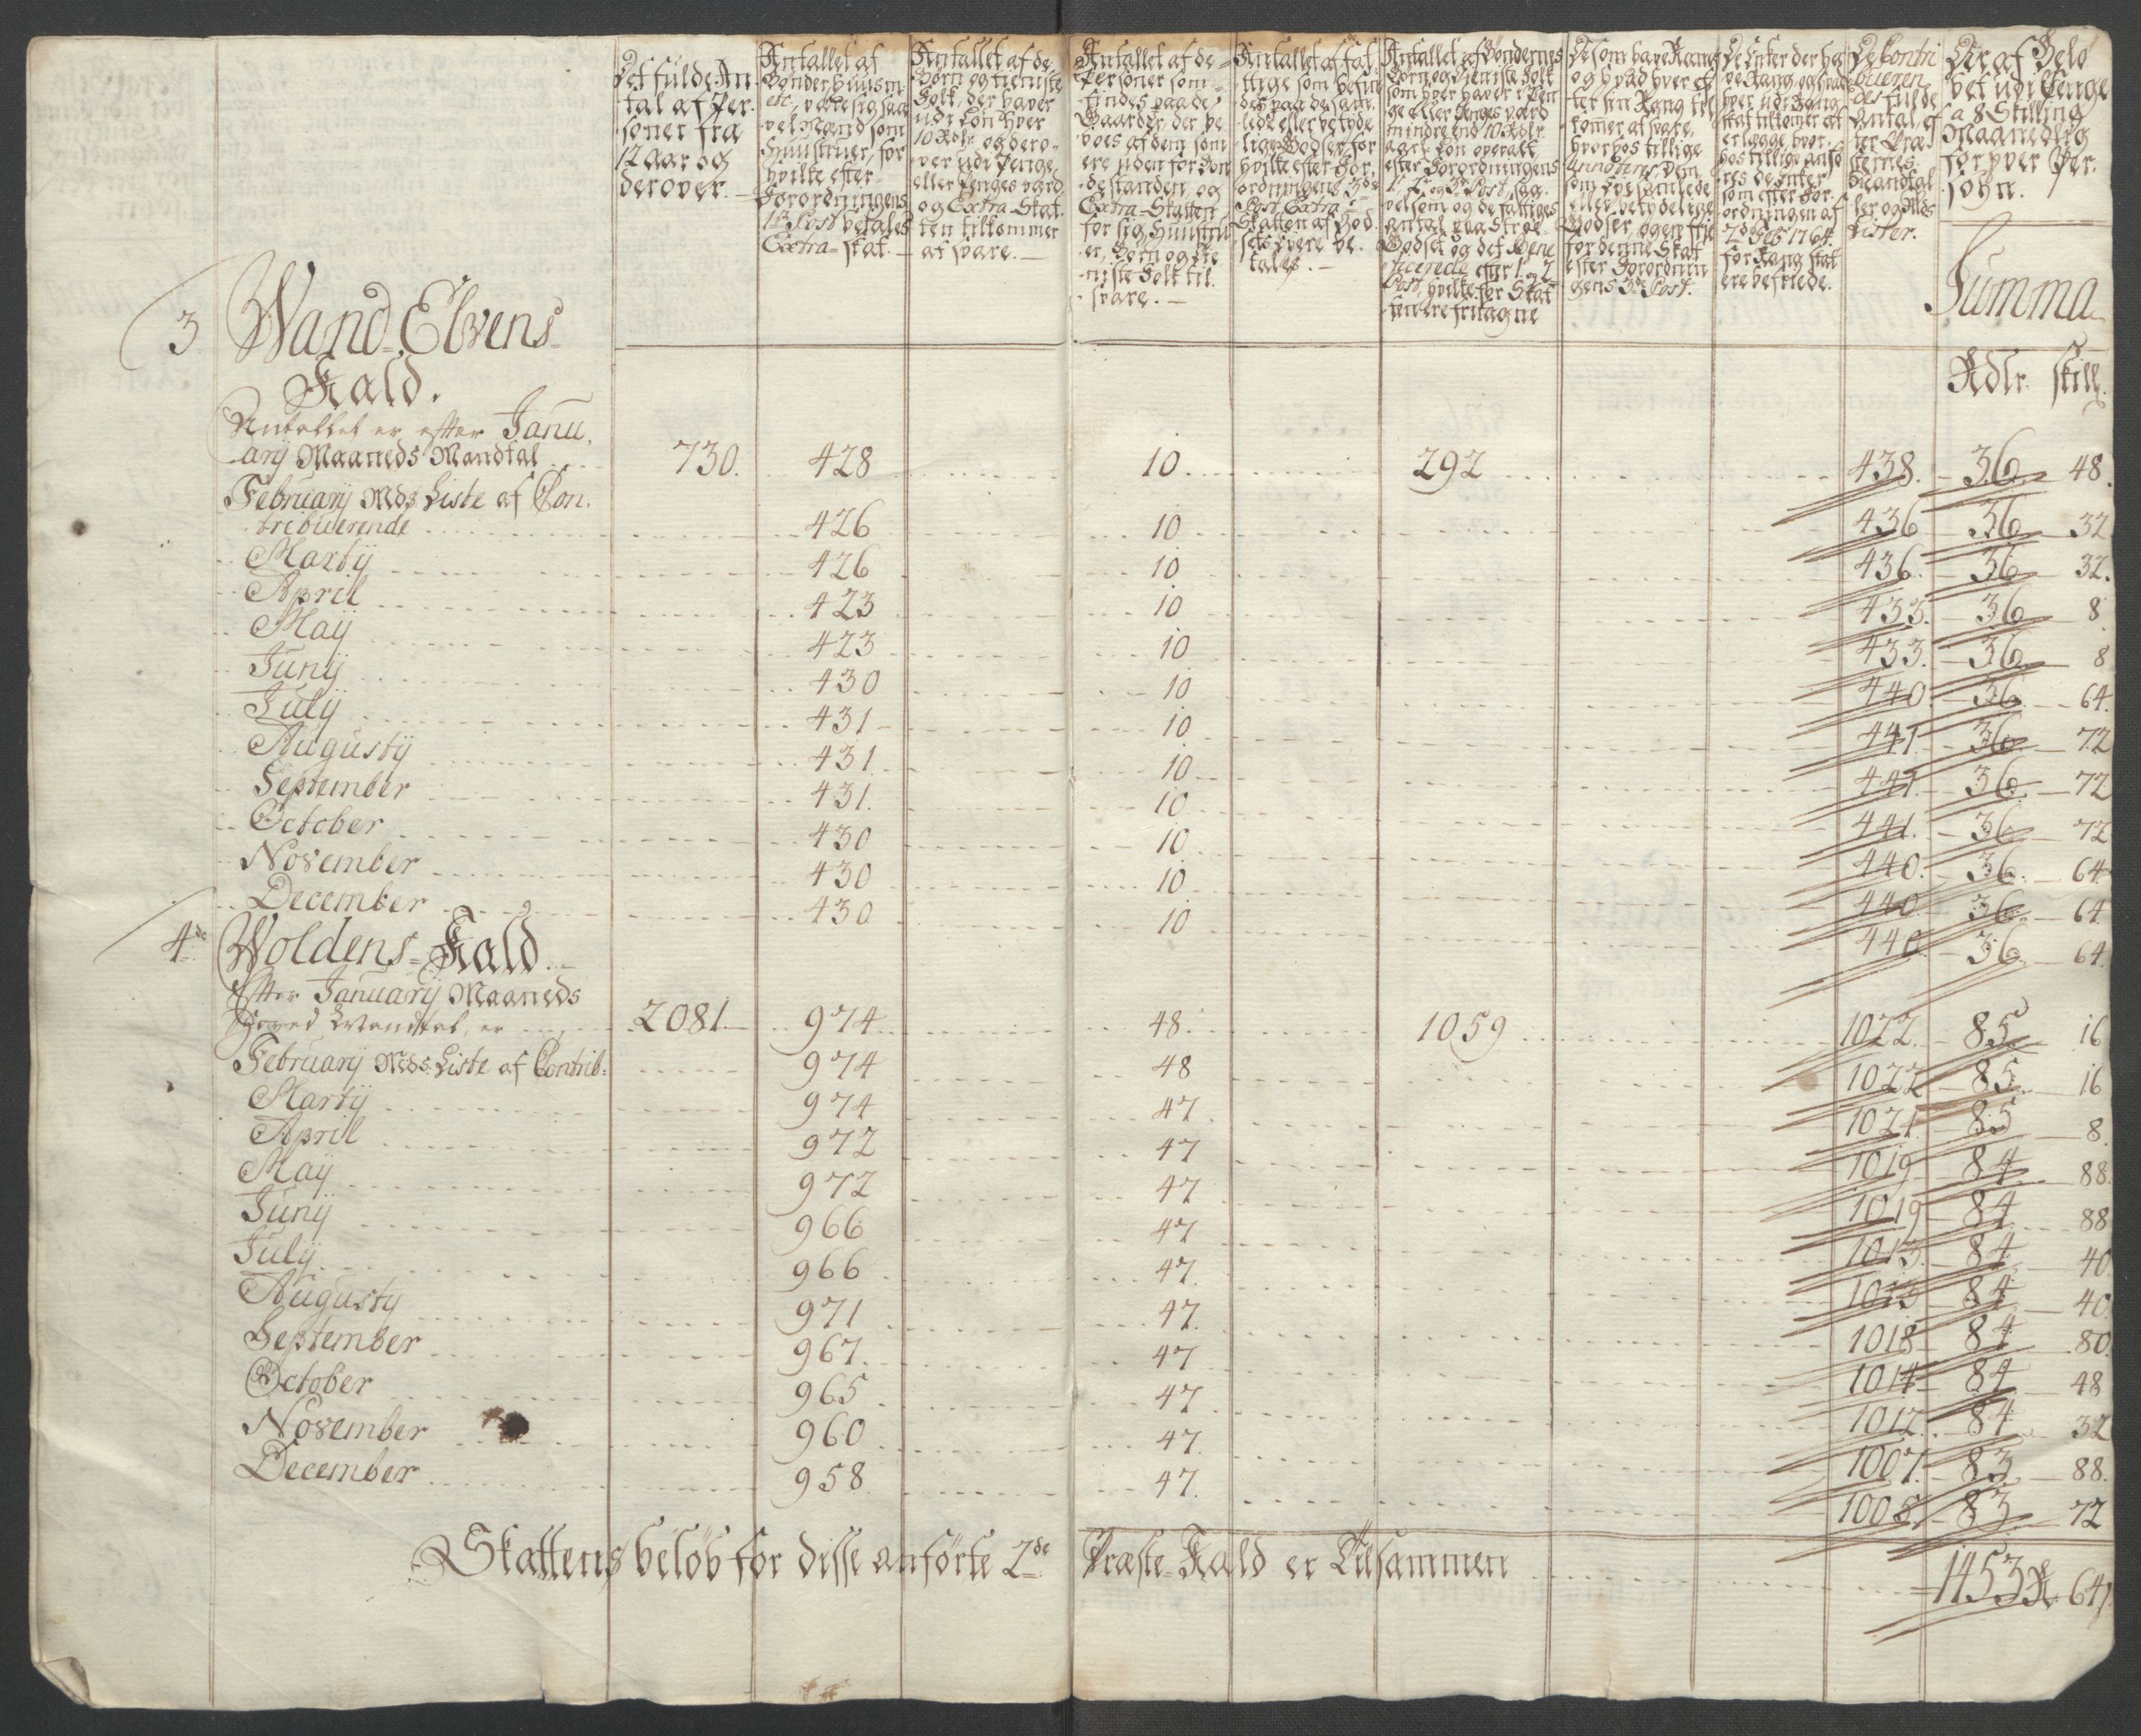 Det fulde An-
tal af Per-
soner fra
12 aar og
derover.
Antallet af
Bønder Huusm:
etc., være sig saa
vel Mand som
Huustruer, for
hvilke efter
Forordningens
1te Post betales
Extra-skat.
Antallet af de
Børn og tieniste
Folk, der haver
udi Løn hver
10 Rdlr. og dero-
ver udi Penge,
eller Penges værd
og Extra-Skat-
ten tilkommer
at svare.
Antallet af de
Personer som
findes paa de
Gaarder, der be-
boes af dem som
ere uden for Bon-
destanden og
Extra-Skatten
for sig, Huustru-
er, Børn og tie-
niste Folk til-
svare.
Antallet af fat-
tige som befin-
des paa de sam-
lede eller betyde-
lige Godser, for
hvilke efter For-
ordningens 3de
Post Extra-
Skatten af God-
sets Eyere be-
tales.
Antallet af Bøndernes
Børn og Tieniste Folk
som hver haver i Pen-
ge eller Penges værd
mindre end 10 Rdlr.
aarl. Løn overalt
efter Forordningens
1. 2. og 3de Post, saa-
velsom og de fattiges
Antal paa Strøe-
Godset og det Bene-
ficerede efter 1. og 2
Post, hvilke for Skat-
ten ere fritagne
De som have Rang
og hvad hver ef-
ter sin Rang til-
kommer at svare,
hvorhos tillige
som Eye samlede
eller betydelige
Godser, og ere frie
for denne Skat
efter Forordnin-
gens 3de Post.
De Enker der ha-
ve Rang, og hvad
hver udi Rang-
skat tilkommer at
erlægge, hvor-
hos tillige anfø-
res de Enker
som efter For-
ordningen af
2de Feb 1764.
for Rang skat
ere befriede.
De Contri-
bueren-
des fulde
Antal, ef-
ter Præ-
sternes
Mandtal-
ler og Mds
Lister.
Der af Belø-
bet udi Penge
a 8 Skilling
Maanedlig
for hver Per-
sohn.
Summa
3 Wand-Elvens
Kald.
Rdlr. skill.
Antallet er efter Janu-
arij Maaneds Mandtal 730. 428 10 292 438. 36 48.
Februarij Mds Liste af Con-
tribuerende 426 10 436 36 32
Martij 426 10 436. 36 32.
April 423 10 433. 36 8
Maij 423 10 433. 36 8
Junij 430 10 440 36 64.
Julij 431 10 441 36 72
Augustij 431 10 441 36 72
September 431. 10 441. 36 72
October 430 10 440. 36 64
November 430 10 440 36 64
December 430 10 440 36 64.
4de Woldens-Kald
Efter Januarij Maaneds
Hoved Mandtal, er 2081. 974 48. 1059 1022. 85 16
Februarij Mds Liste af Contrib: 974 48 1022 85 16
Martij 974 47 1021 85 8.
April 972 47 1019 84 88.
Maij 972 47 1019 84 88
Junij 966 47 1013. 84 40
Julij 966 47. 1013 84 40.
Augustij 971 47. 1018 84 80.
September 967. 47 1014 84 48
October 965 47 1012. 84 32
November 960 47. 1007. 83 88.
December 958. 47. 1005. 83 72
Skattens beløb for disse anførte 2de Præste-Kald er Tilsammen 1453 R 64